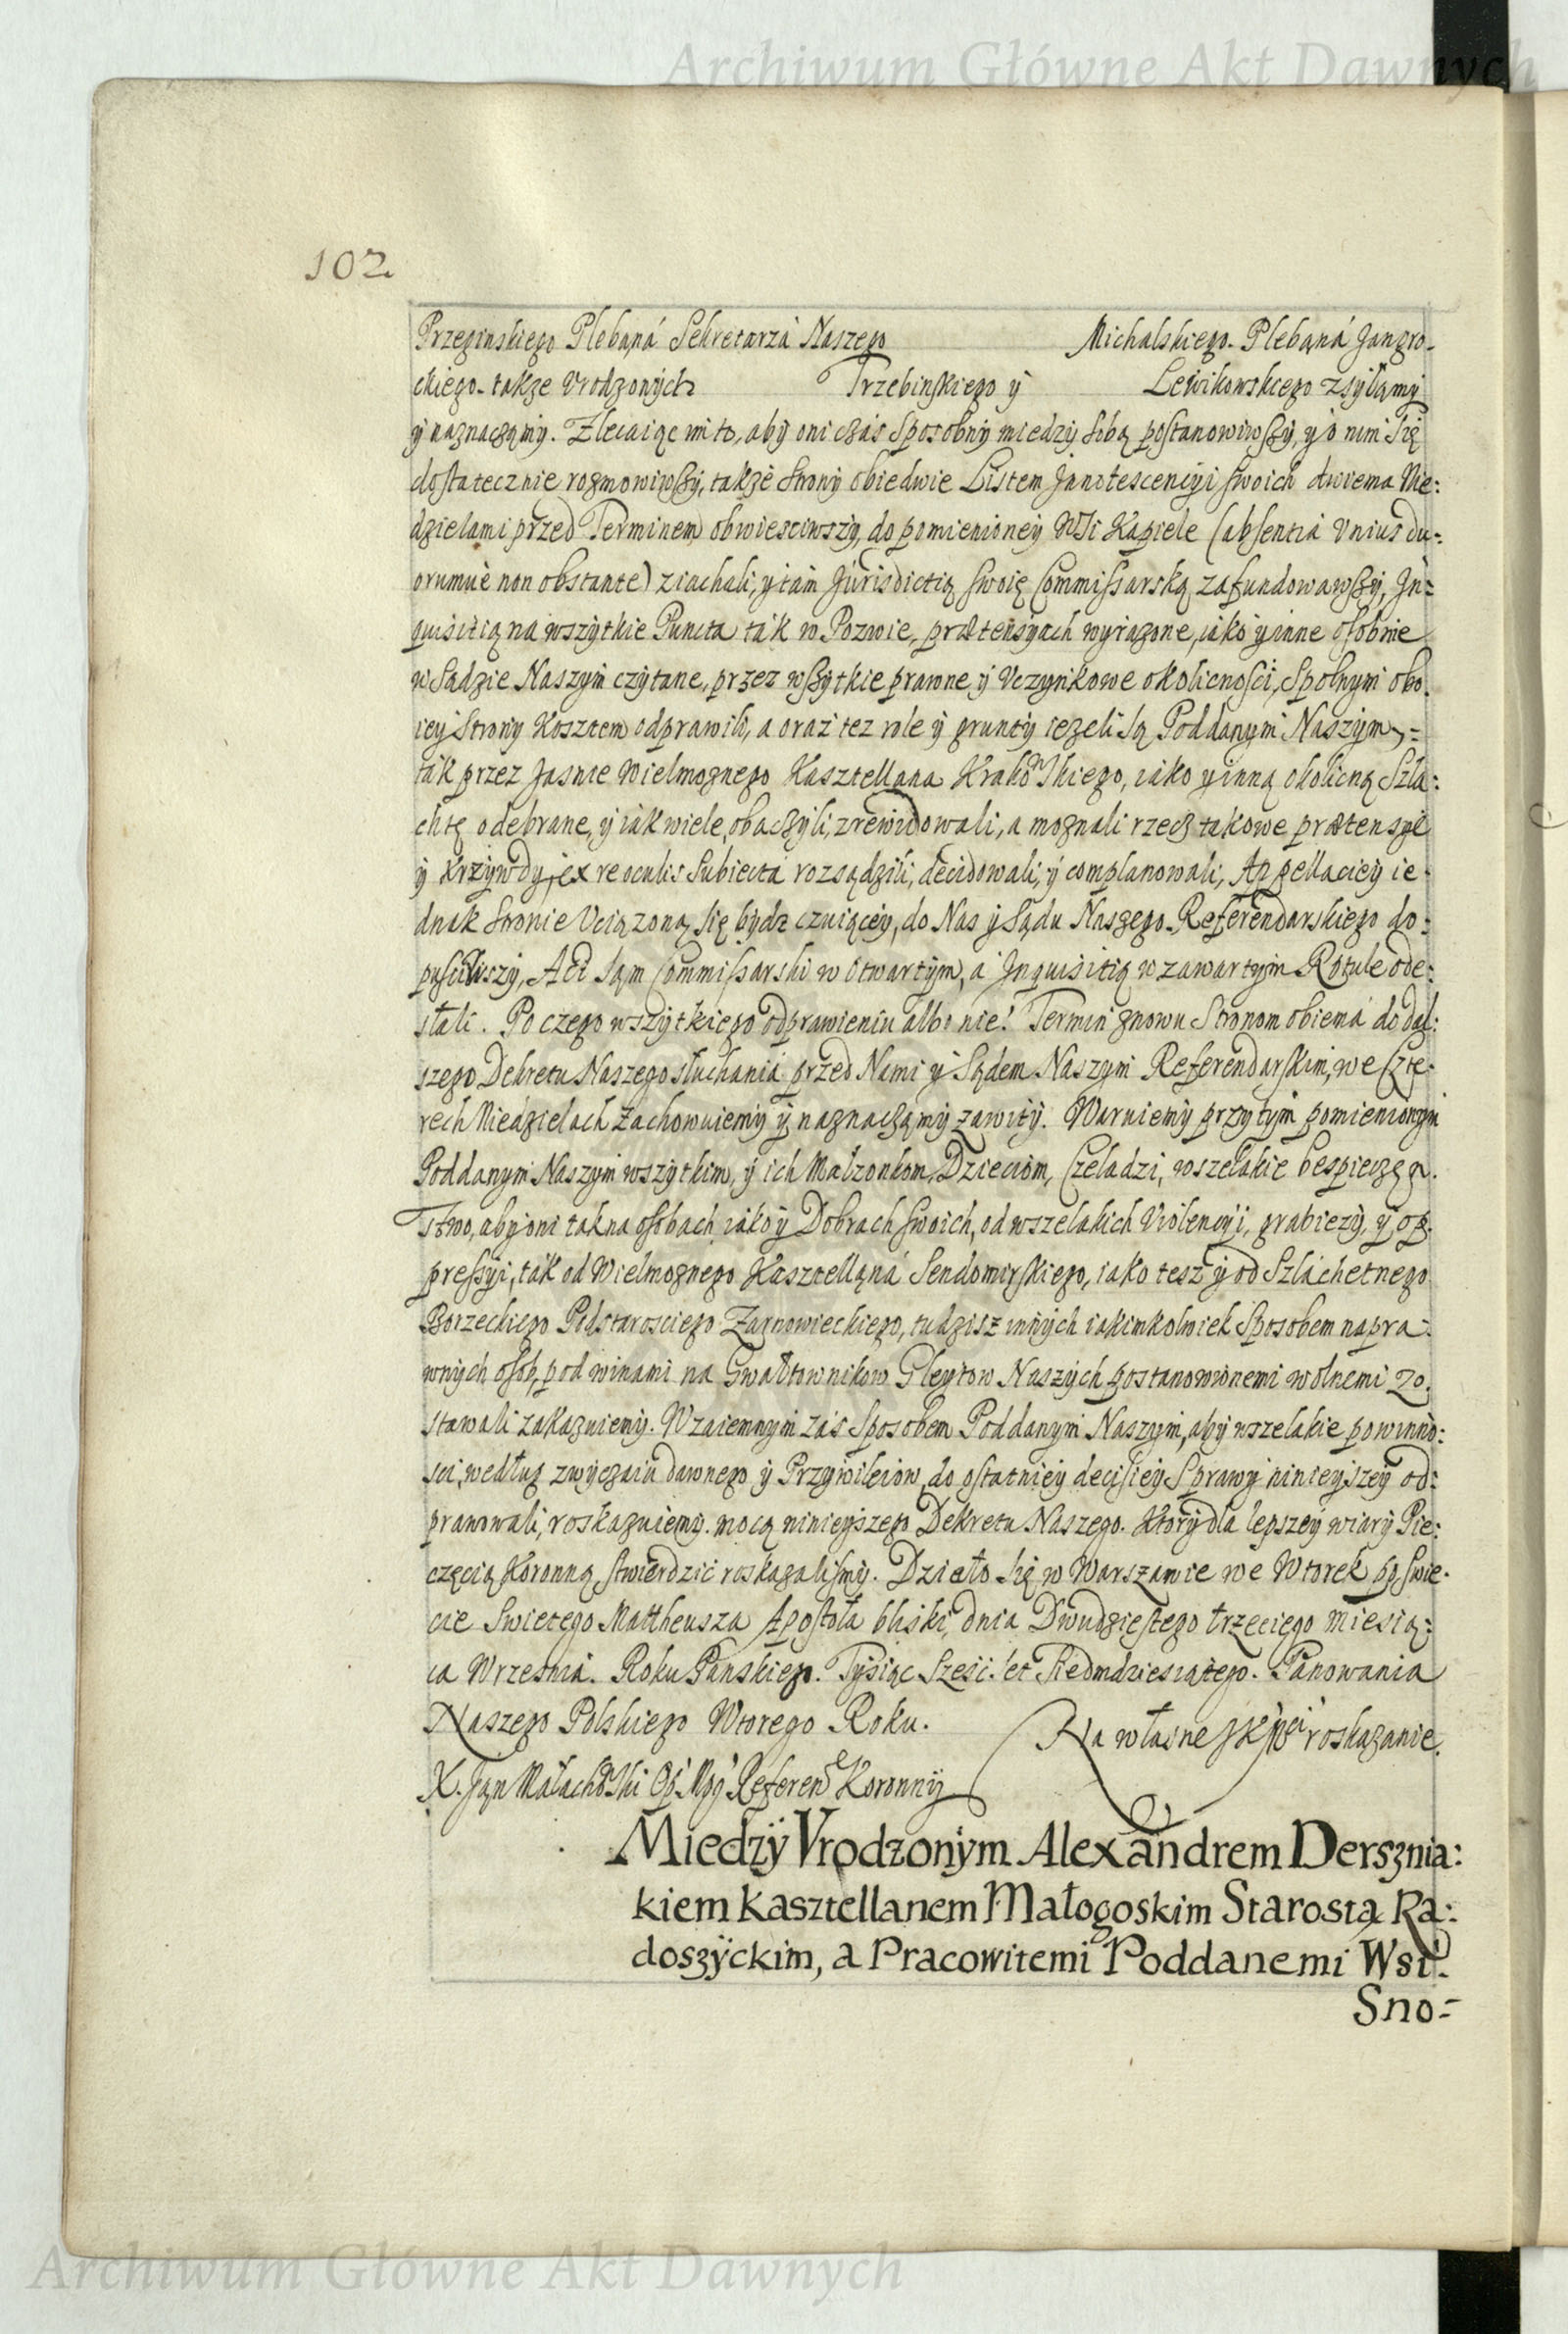 Archiwum Główne Akt Dawnych
102
Przeginskiego Plebaná Sekretarzá Naszego Michalskiego Plebaná Jangro-
ckiego także Vrodzonych Trzebinskiego ÿ Lewikowskiego zsyłamÿ
ÿ naznaczamÿ. Zlecaiąc im to, abÿ oni czás sposobnÿ miedzÿ sobą postanowiwszÿ, ÿ o nim się
dostatecznie rozmowiwszÿ, także stronÿ obiedwie Listem Jnnotescencÿi swoich dwiema Nie:
dzielami przed Terminem obwiesciwszÿ, do pomienioneÿ WSi Kąpiele (absentiá vnius du=
orumue non obstante) ziachali, ÿ tám Jurisdictią swoię Commissarską zafundowawszÿ, Jn=
quisitią na wszÿtkie Puncta ták w Pozwie, prætensÿach wyrażone, iáko ÿ inne osobnie
w Sądzie Naszÿm czÿtane, przez wszÿtkie prawne ÿ Vczÿnkowe okolicnosci, Spolnÿm obo
ieÿ Stronÿ Kosztem odprawili, a oraz tez role ÿ gruntÿ iezeli są Poddanÿm Naszÿm,=
ták przez Jasnie Wielmoznego Kasztellana KrakoWSkiego, iáko ÿ inną okolicną Szla:
chtę odebrane, ÿ iák wiele, obaczÿli, zrewidowali, a moznali rzecz takowe prætensÿe
ÿ krzÿwdÿ, ex re oculis subiecta rozsądzili, decidowali, ÿ complanowali, Appellacieÿ ie-
dnak Stronie Vciązoną się bÿdz czuiąceÿ, do Nas ÿ Sądu Naszego Referendarskiego do:
puściwszÿ, Act sąm Commissarski w otwartÿm, a Jnquisitią w zawartÿm Rotule ode:
słali. Po czego wszÿtkiego odprawieniu albo nie! Termin znowu Stronom obiemá do dal:
szego Dekretu Naszego słuchania przed Nami ÿ Sądem Naszÿm Referendarskim, we Czte-
rech Niedzielach zachowuiemÿ ÿ naznaczamÿ zawitÿ. Waruiemÿ przÿ tÿm pomienionÿm
Poddanÿm Naszÿm wszÿtkim, ÿ ich Małzonkom, Dzieciom, Czeladzi, wszelakie bespieczen-
stwo, abÿ oni tak na osobach iáko ÿ Dobrach swoich, od wszelakich Violencÿi, grabiezÿ, ÿ op-
pressÿi, ták od Wielmoznego Kasztellaná Sendomirskiego, iako tesz ÿ od Szláchetnego
Borzeckiego Podstarosciego Zarnowieckiego, tudzisz innÿch iakimkolwiek sposobem napra:
wnÿch osób, pod winami na Gwałtownikow Gleÿtow Naszÿch postanowionemi wolnemi zo.
stawali zakazuiemÿ. Wzaiemnÿm zás sposobem Poddanÿm Naszÿm, abÿ wszelakie powinno:
sci, według zwÿczaiu dawnego ÿ Przÿwileiow, do ostatnieÿ decisieÿ Sprawÿ ninieÿszeÿ od:
prawowali, roskazuiemÿ. mocą ninieÿszego Dekretu Naszego. Którÿ dla lepszeÿ wiarÿ Pie:
częcią Koronną stwierdzić roskazalismÿ. Działo się w Warszawie we Wtorek po Swie-
cie Swietego Mattheusza Apostoła bliski, dnia Dwudziestego trzeciego miesią:
ca Wrzesniá. Roku Panskiego. Tÿsiąc Szesć set Siedmdziesiątego. Panowania
Naszego Polskiego Wtorego Roku. Na własne JKMći roskazanie.
X. Jąn MałachoWSki Op: Mog: Referendº Koronnÿ
Miedzÿ Vrodzonÿm Alexandrem Dersznia:
kiem Kasztellanem Małogoskim Starostą Ra:
doszÿckim, a Pracowitemi Poddanemi Wsi
Sno=
Archiwum Główne Akt Dawnych